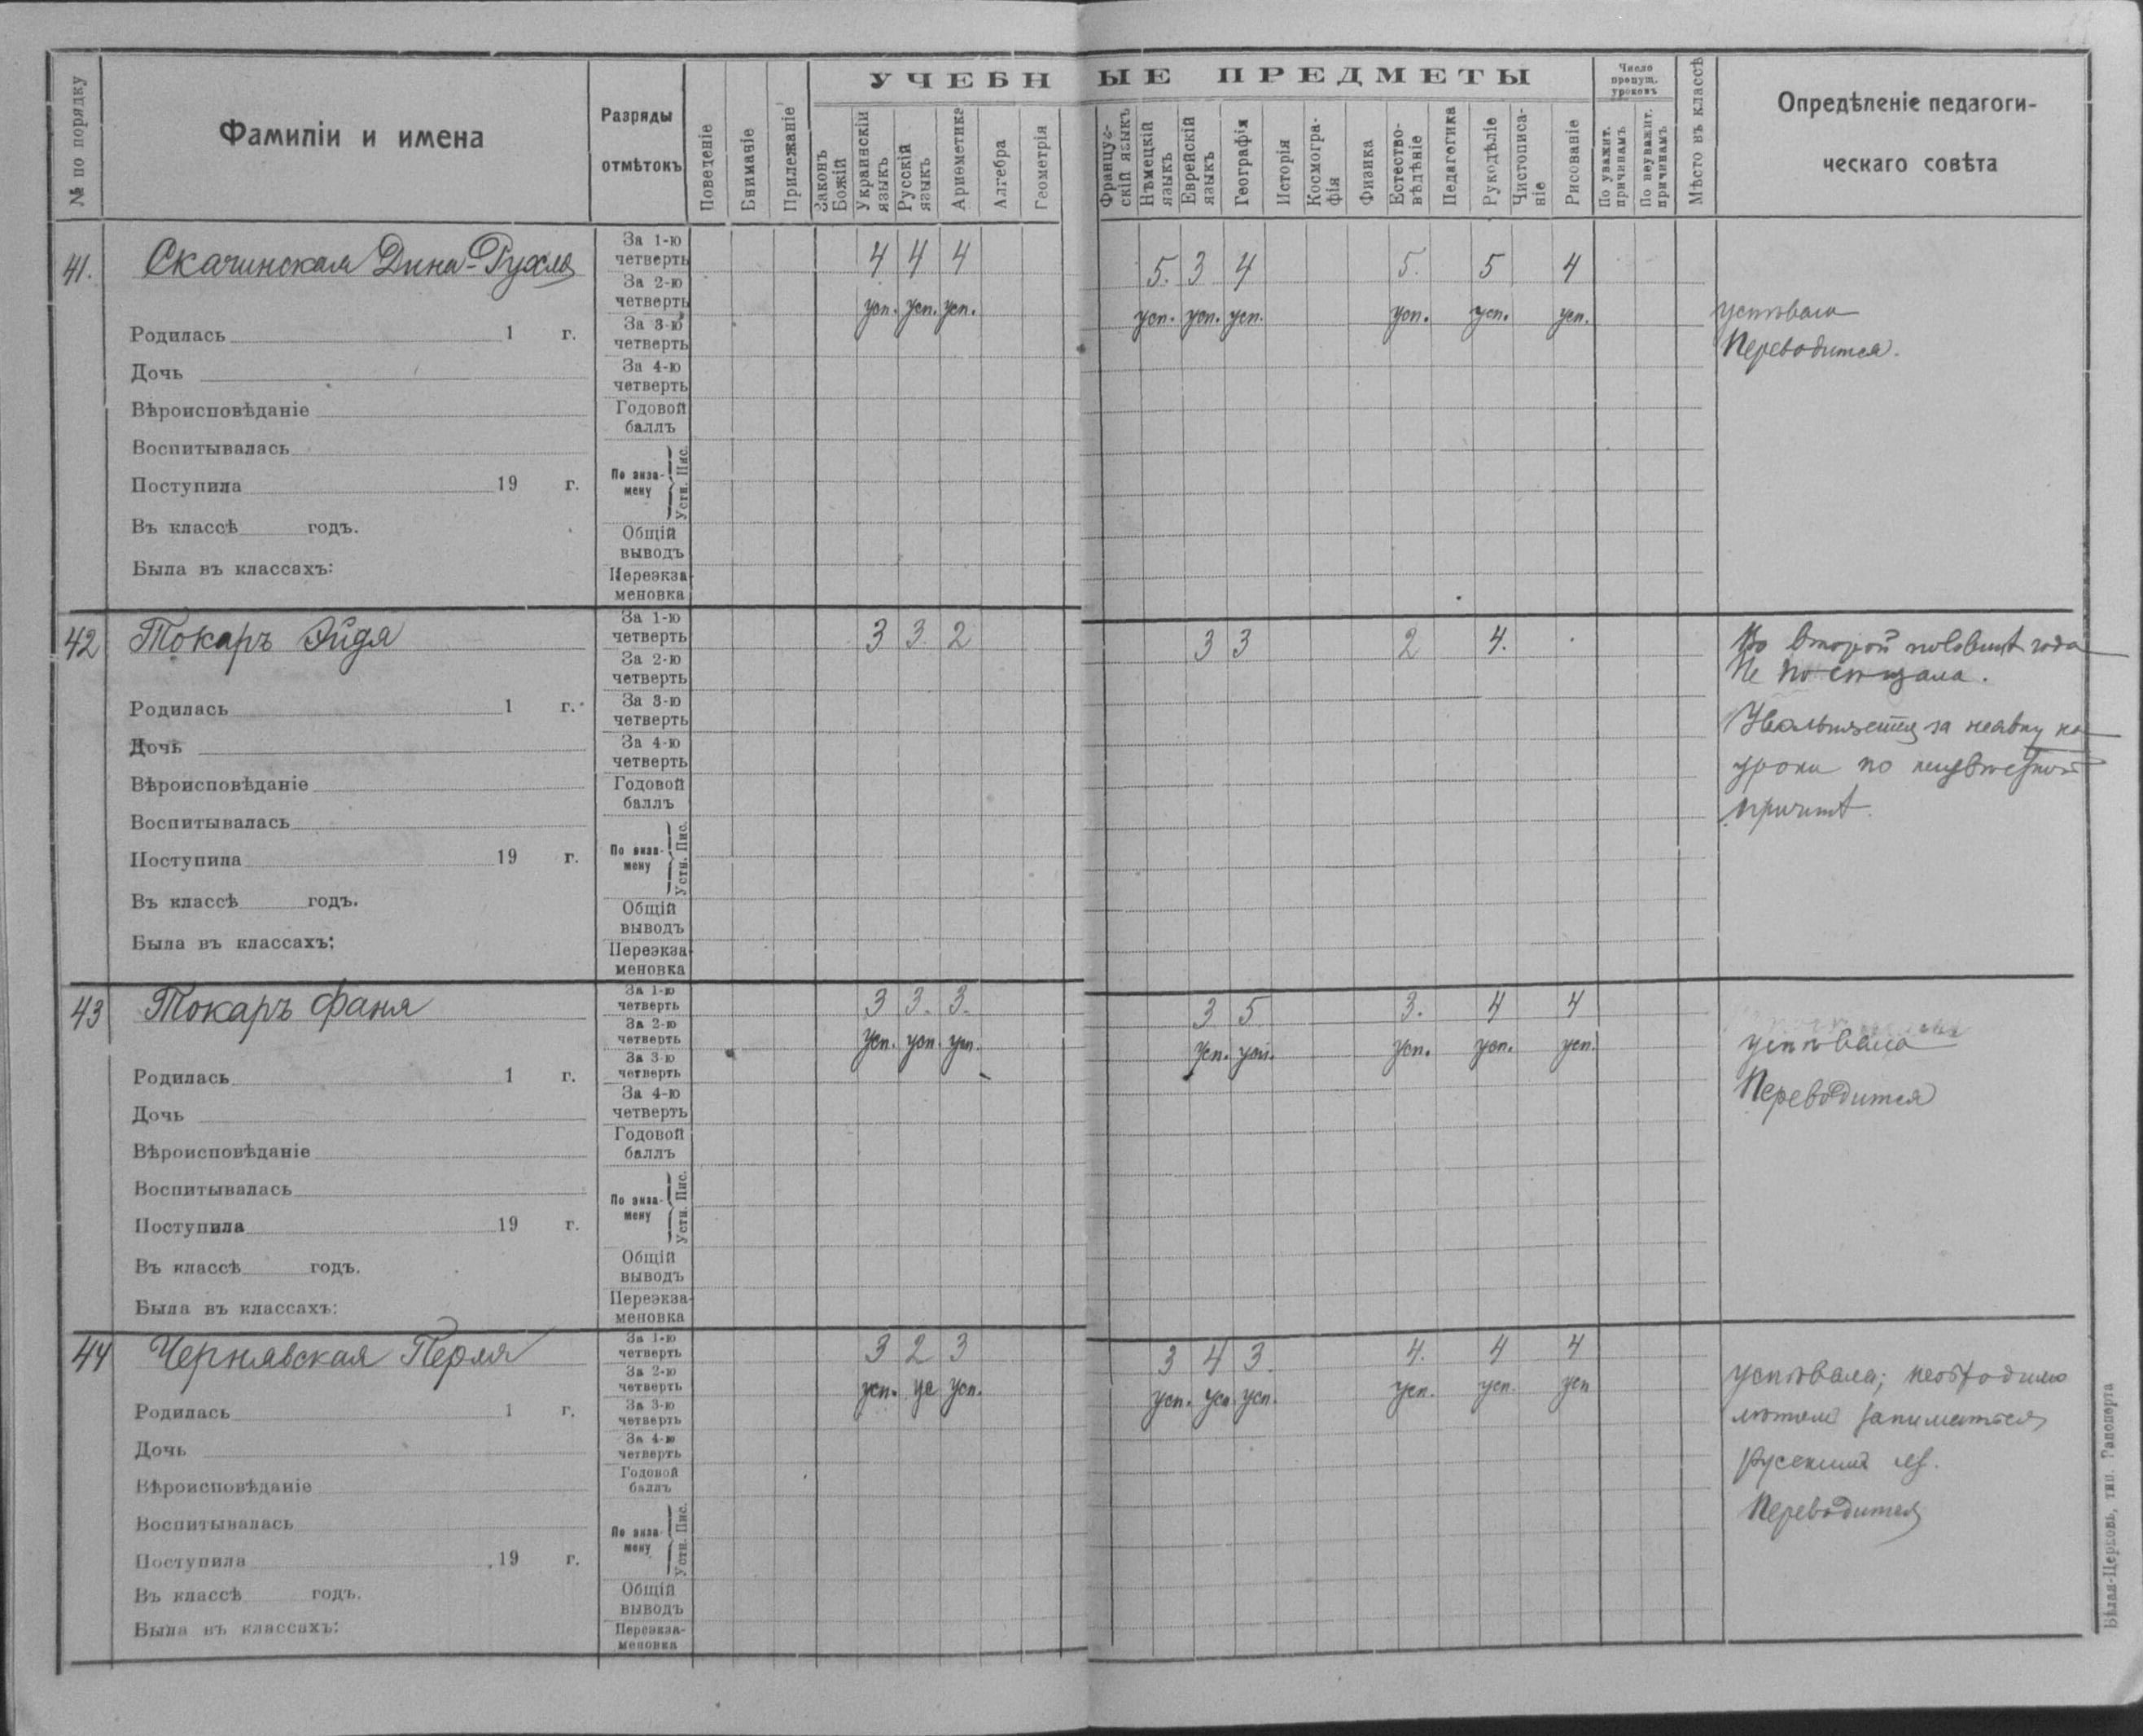 УЧЕБНЫЕ ПРЕДМЕТЫ
№ по порядку
Фамиліи и имена
Разряды
отмѣтокъ
Поведеніе
Вниманіе
Прилежаніе
Законъ Божій
Украинскій языкъ
Русскій языкъ
Ариѳметика
Алгебра
Геометрія
Француз-скій языкъ
Нѣмецкій языкъ
Еврейскій языкъ
Географія
Исторія
Космогра-фія
Физика
Естество-вѣдѣніе
Педагогика
Рукодѣліе
Чистописа-ніе
Рисованіе
Число пропущ. уроковъ
По уважит. причинамъ
По неуважит. причинамъ
Мѣсто въ классѣ
Опредѣленіе педагоги-
ческаго совѣта
41. Скачинская Дина-Рухля
За 1-ю четверть 4 4 4 5. 3 4 5. 5 4
За 2-ю четверть усп. усп. усп. усп. усп. усп. усп. усп. усп.
успѣвала
Переводится.
За 3-ю четверть
Родилась 1 г.
Дочь
За 4-ю четверть
Вѣроисповѣданіе
Годовой баллъ
Воспитывалась
По экза-мену Устн. Пис.
Поступила 19 г.
Въ классѣ годъ.
Общій выводъ
Была въ классахъ:
Переэкза-меновка
42 Токаръ Эйдя
За 1-ю четверть 3 3 2 3 3 2 4.
Во второй половинѣ года
не посѣщала.
Увольняется за неявку на
уроки по неуважтельной
причинѣ.
За 2-ю четверть
За 3-ю четверть
Родилась 1 г.
Дочь
За 4-ю четверть
Вѣроисповѣданіе
Годовой баллъ
Воспитывалась
По экза-мену Устн. Пис.
Поступила 19 г.
Въ классѣ годъ.
Общій выводъ
Была въ классахъ:
Переэкза-меновка
43 Токаръ Фаня
За 1-ю четверть 3 3. 3. 3 5 3. 4 4
За 2-ю четверть усп. усп. усп. усп. усп. усп. усп. усп.
успѣвала
Переводится
За 3-ю четверть
Родилась 1 г.
За 4-ю четверть
Дочь
Вѣроисповѣданіе
Годовой баллъ
Воспитывалась
По экза-мену Устн. Пис.
Поступила 19 г.
Въ классѣ годъ.
Общій выводъ
Была въ классахъ:
Переэкза-меновка
44 Чернявская Перля
За 1-ю четверть 3 2 3 3 4 3. 4. 4 4
За 2-ю четверть усп. ус усп. усп. усп усп. усп. усп. усп
успѣвала; необходимо
лѣтомъ заниматься
русскимъ яз.
Переводится
За 3-ю четверть
Родилась 1 г.
За 4-ю четверть
Дочь
Вѣроисповѣданіе
Годовой баллъ
Воспитывалась
По экза-мену Устн. Пис.
Поступила 19 г.
Въ классѣ годъ.
Общій выводъ
Была въ классахъ:
Переэкза-меновка
Бѣлая-Церковь, тип. Гапоперта